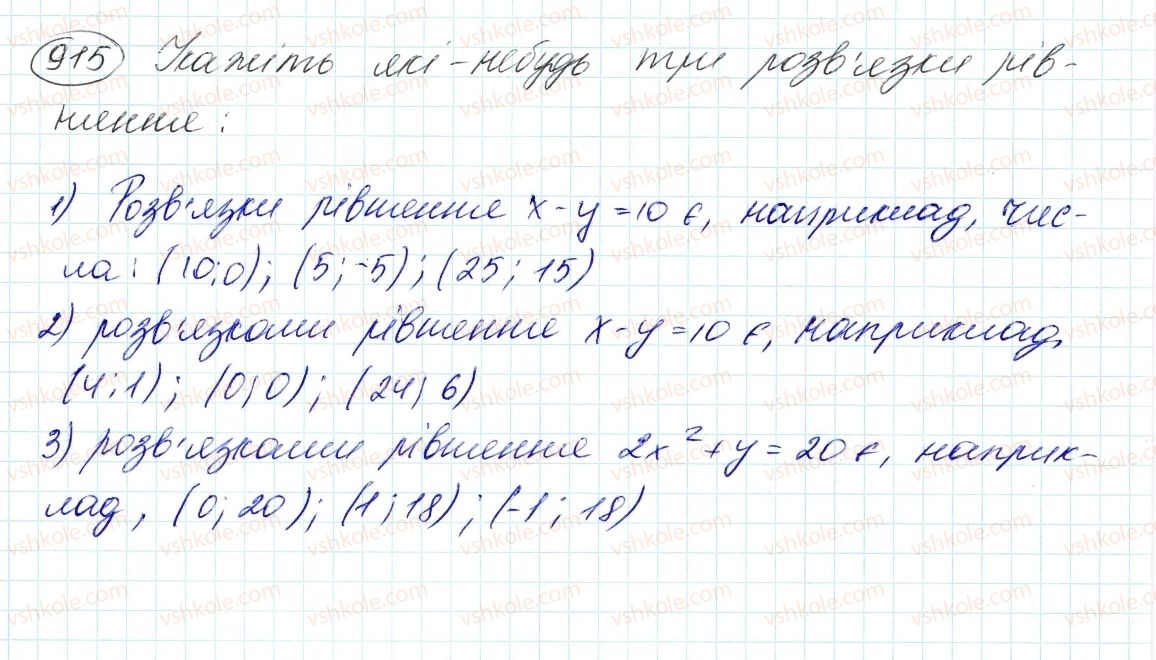 915 Укажіть які-небудь три розв'язки рів-
няння:
1) Розв'язки рівняння x-y=10 є, наприклад, чис-
ла: (10;0); (5;-5); (25; 15)
2) розв'язками рівняння x-y=10 є, наприклад,
(4;1); (0;0); (24; 6)
3) розв'язками рівняння 2x²+y=20 є, наприк-
лад, (0; 20); (1; 18); (-1; 18)